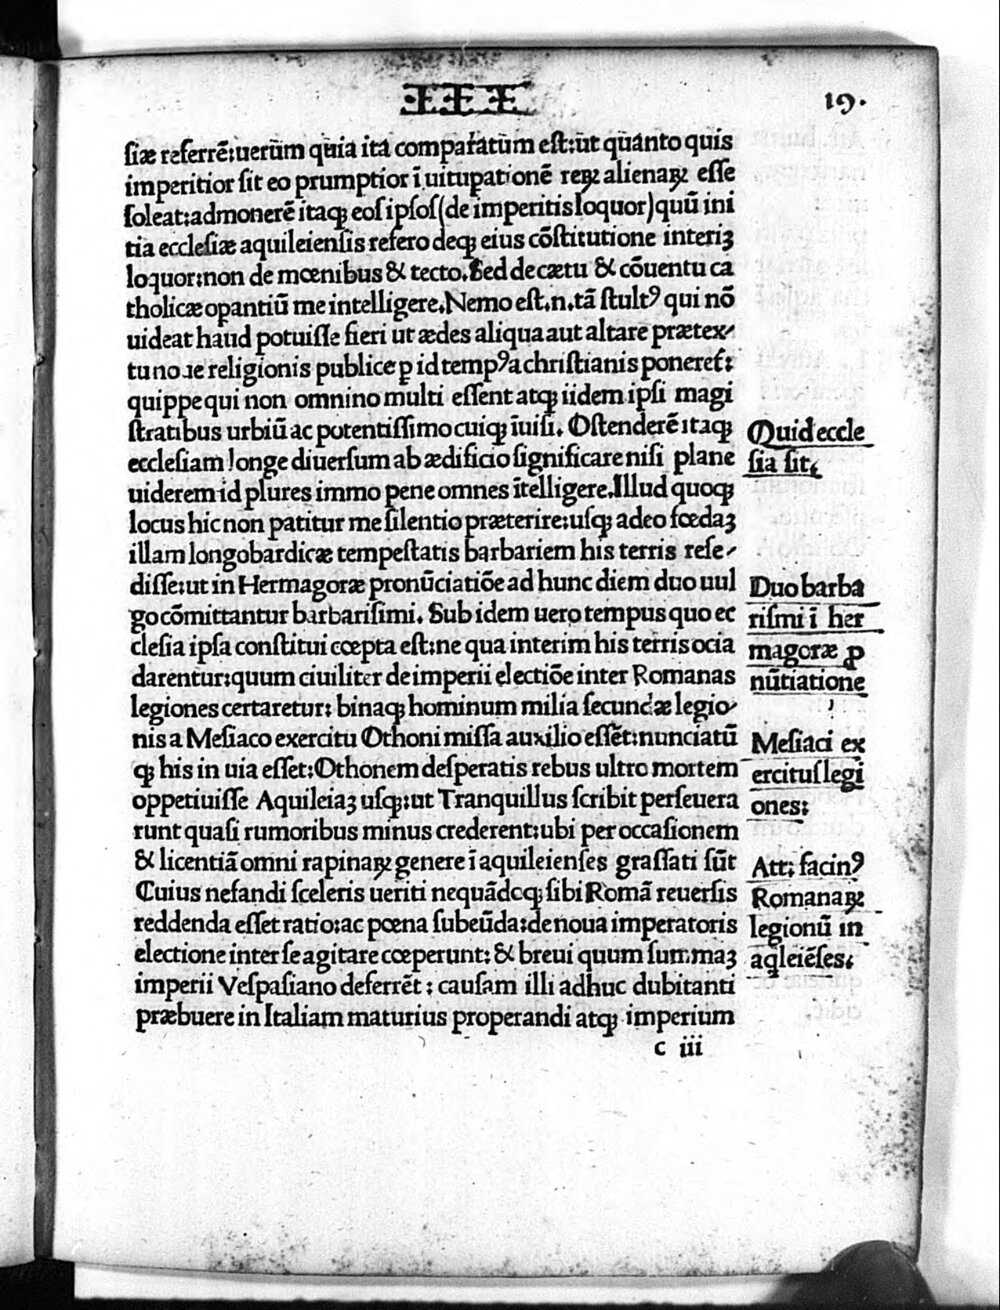 19.
ſiæ referrē:uerūm quia ita comparatum eſt:ut quanto quis
imperitior ſit eo prumptior ī uitupationē reꝝ alienaꝝ eſſe
ſoleat:admonerē itaqꝫ eoſ ipſoſ(de imperitis loquor)quū ini
tia eccleſiæ aquileienſis refero deqꝫ eius cōſtitutione interiꝫ
loquor:non de mœnibus & tecto. Sed de cætu & cōuentu ca
tholicæ opantiū me intelligere. Nemo eſt.n.tā ſtultꝰ qui nō
uideat haud potuiſſe fieri ut ædes aliqua aut altare prætex-
tu noſtræ religionis publice p id tempꝰ a chriſtianis poneret:
quippe qui non omnino multi eſſent atqꝫ iidem ipſi magi
ſtratibus urbiū ac potentiſſimo cuiqꝫ īuiſi. Oſtenderē itaqꝫ
eccleſiam longe diuerſum ab ædificio ſignificare niſi plane
uiderem id plures immo pene omnes ītelligere. Illud quoqꝫ
locus hic non patitur me ſilentio præterire:uſqꝫ adeo fœdaꝫ
illam longobardicæ tempeſtatis barbariem his terris reſe-
diſſe:ut in Hermagoræ pronūciatiōe ad hunc diem duo uul
go cōmittantur barbariſimi. Sub idem uero tempus quo ec
cleſia ipſa conſtitui cœpta eſt:ne qua interim his terris ocia
darentur:quum ciuiliter de imperii electiōe inter Romanas
legiones certaretur: binaqꝫ hominum milia ſecundæ legio-
nis a Meſiaco exercitu Othoni miſſa auxilio eſſēt:nunciatū
qꝫ his in uia eſſet:Othonem deſperatis rebus ultro mortem
oppetiuiſſe Aquileiaꝫ uſqꝫ:ut Tranquillus ſcribit perſeuera
runt quaſi rumoribus minus crederent:ubi per occaſionem
& licentiā omni rapinaꝝ genere ī aquileienſes graſſati ſūt
Cuius nefandi ſceleris ueriti nequādoqꝫ ſibi Romā reuerſis
reddenda eſſet ratio:ac pœna ſubeūda:de noua imperatoris
electione inter ſe agitare cœperunt: & breui quum ſummaꝫ
imperii Veſpaſiano deferrēt : cauſam illi adhuc dubitanti
præbuere in Italiam maturius properandi atqꝫ imperium
c iii
Quid eccle
ſia ſit.
Duo barba
riſmi ī her
magoræ ꝓ
nūtiatione
Meſiaci ex
ercituſ legi
ones:
Att: facinꝰ
Romanaꝝ
legionū in
aqleiēſes.